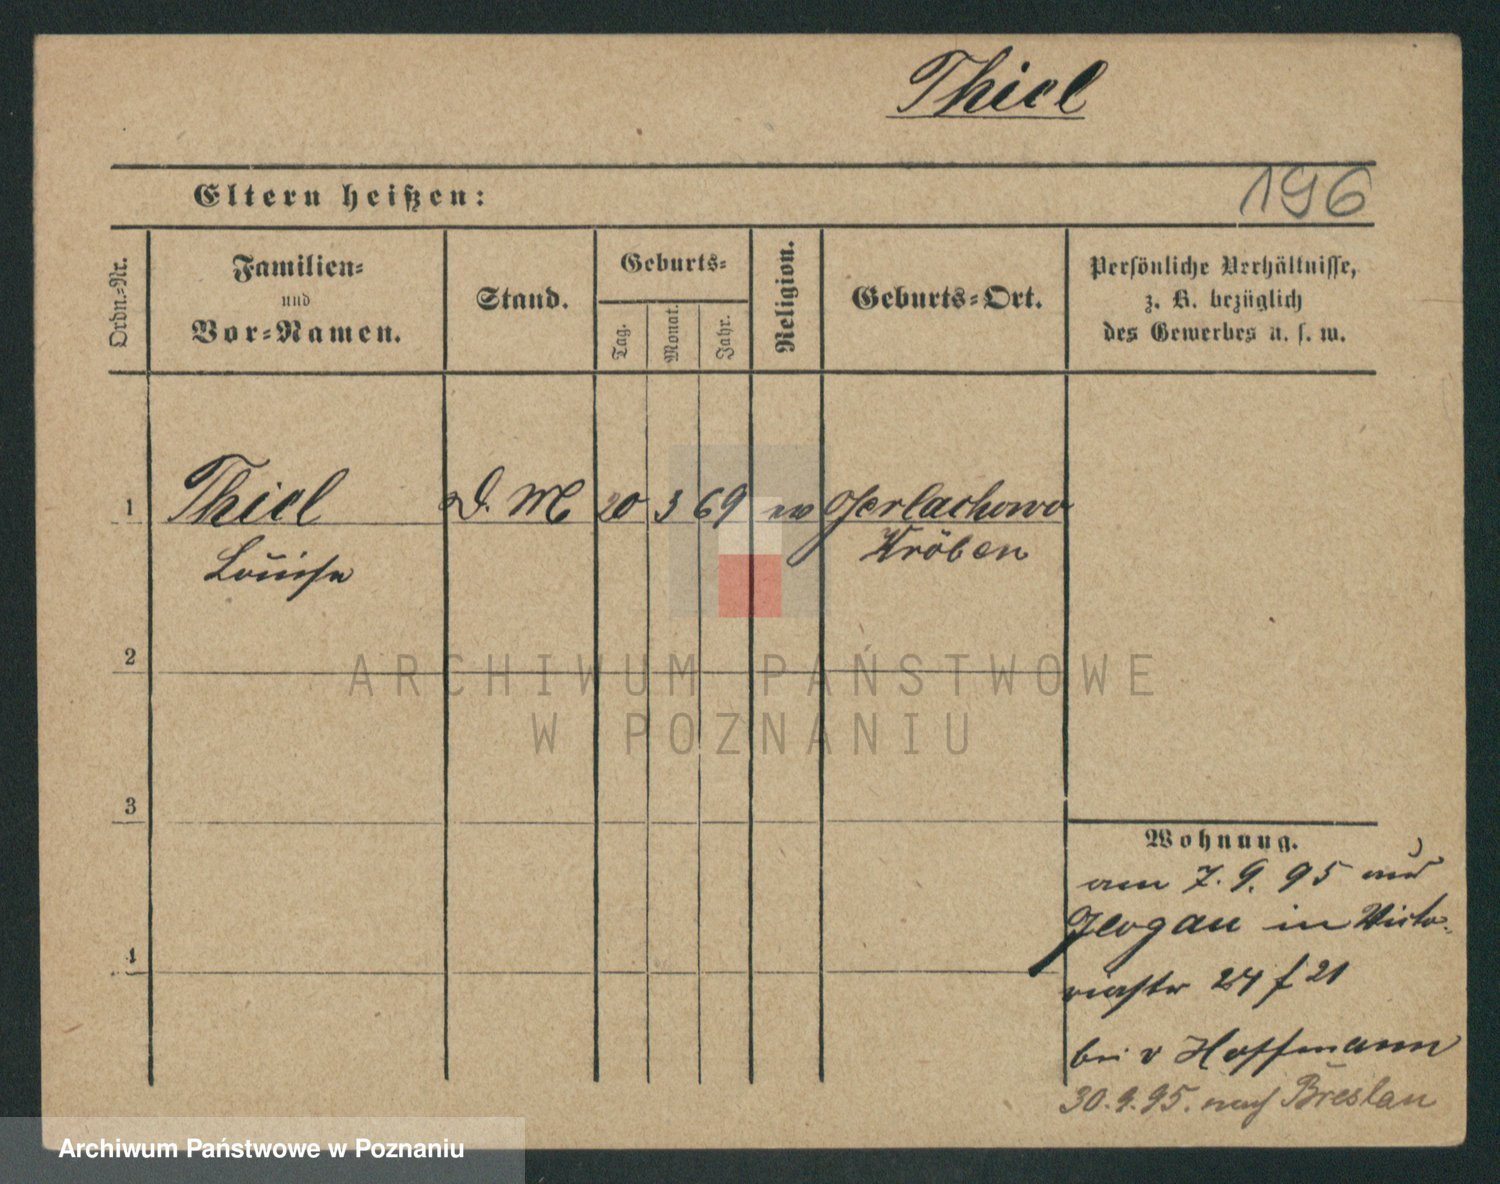 Thiel
Eltern heißen:
196
Ordn.-Nr.
Familien-
und
Vor-Namen.
Stand.
Geburts-
Tag.
Monat.
Jahr.
Religion.
Geburts-Ort.
Persönliche Verhältnisse,
z. B. bezüglich
des Gewerbes u. s. w.
1
Thiel
D. M
20
3
69
ev
Gerlachowo
Louise
Kröben
2
ARCHIWUM PAŃSTWOWE
W POZNANIU
3
Wohnung.
am 7. 9. 95 aus
Glogau in Victo-
riastr 24 f 21
4
bei v Hoffmann
30. 9. 95. nach Breslau
Archiwum Państwowe w Poznaniu